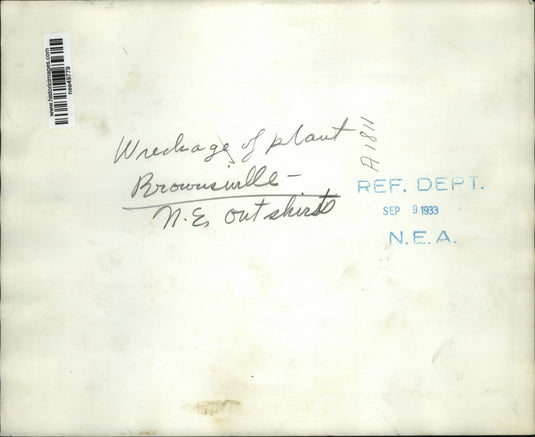 www.historicimages.com
nea49779
Wreckage of plant
Brownsville -
N.E. outskirts
A1811
REF. DEPT.
SEP 9 1933
N.E.A.